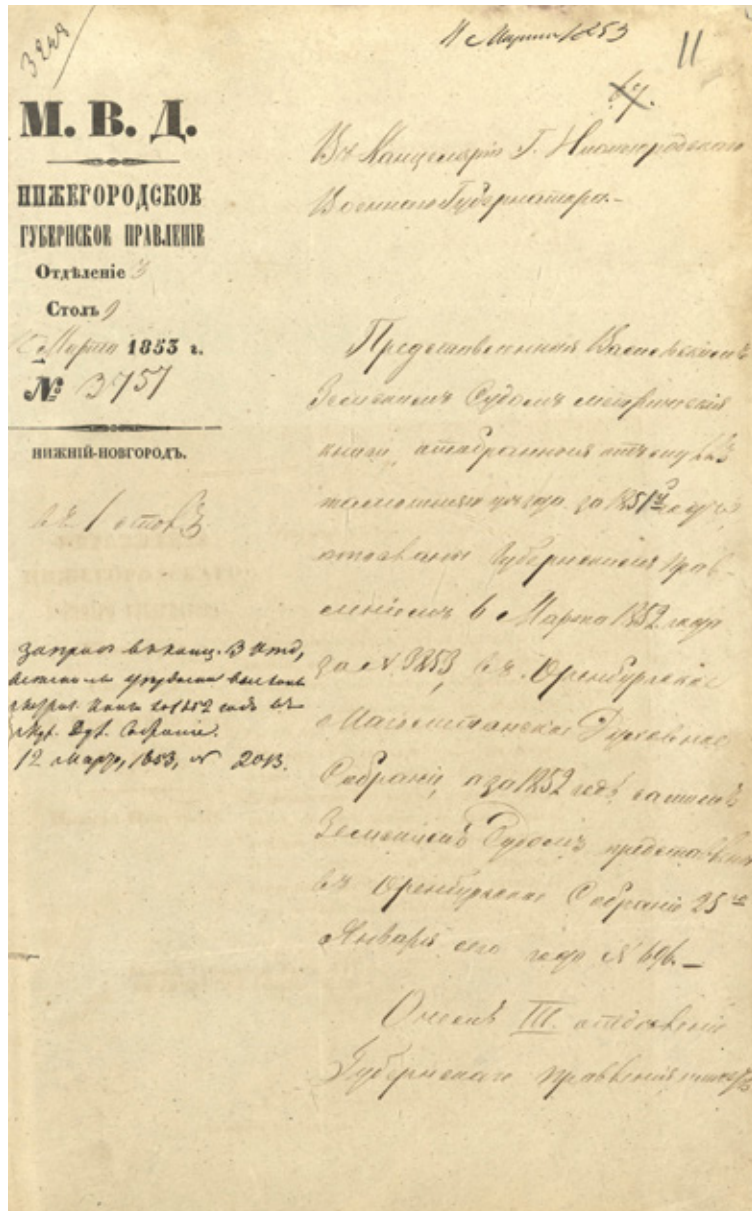 3248
11 Марта 1853
11
М. В. Д.
НИЖЕГОРОДСКОЕ
ГУБЕРНСКОЕ ПРАВЛЕНІЕ
Отдѣленіе 3
Столъ
Марта 1853 г.
№ 3757
НИЖНІЙ-НОВГОРОДЪ.
12 марта, 1853, № 2013.
Въ Канцелярію Г. Нижегородскаго
Военнаго Губернатора.-
Представленныя Васильскимъ
Земскимъ Судомъ метрическія
книги,
уѣзда за 1851й годъ
отосланы Губернскимъ Прав-
леніемъ 6 Марта 1852 года
за № 3253, въ Оренбургское
Магометанское Духовное
Собраніе, а за 1852 годъ самимъ
Земскимъ Судомъ представлены
въ Оренбургское Собраніе 25го
Января сего года № 696.—
О чемъ III. отдѣленіе
Губернскаго Правленія